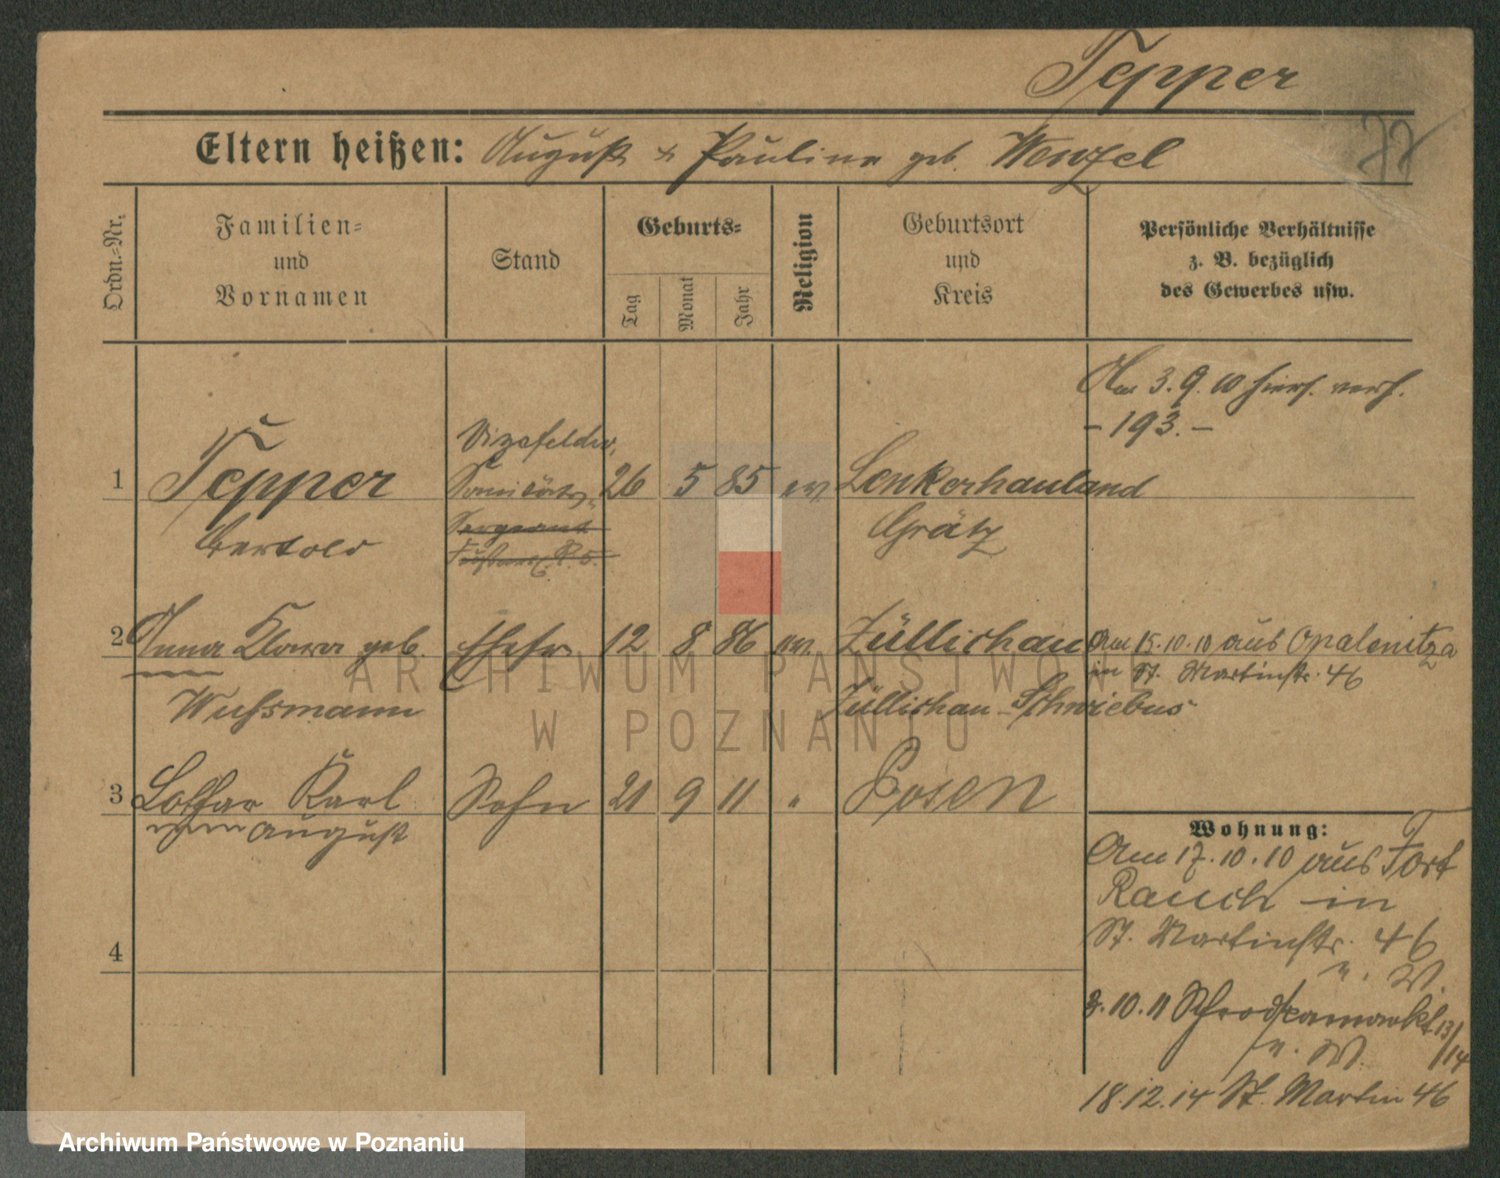 Tepper
Eltern heißen: August & Pauline geb. Wenzel
77
Ordn.-Nr.
Familien-
und
Vornamen
Stand
Geburts-
Tag
Monat
Jahr
Religion
Geburtsort
und
Kreis
Persönliche Verhältnisse
z. B. bezüglich
des Gewerbes usw.
Am 3.9.10 hier verh.
- 193. -
Vizefeldw.
1 Tepper Sanitäts- 26 5 85 ev. Lenkerhauland
Sergeant
Bertold Grätz
2 Anna Klara geb. Ehefr 12 8 86 ev. Züllichau Am 15.10.10 aus Opalenitza
in St. Martinstr. 46
Wuhsmann Züllichau-Schwiebus
3 Lothar Karl Sohn 21 9 11 " Posen
August
Wohnung:
Am 17.10.10 aus Fort
Rauch in
St. Martinstr. 46
u. W.
4
3.10.11 Schrodkamarkt 13/14
u. W.
18.12.14 St. Martin 46
ARCHIWUM PAŃSTWOWE
W POZNANIU
Archiwum Państwowe w Poznaniu